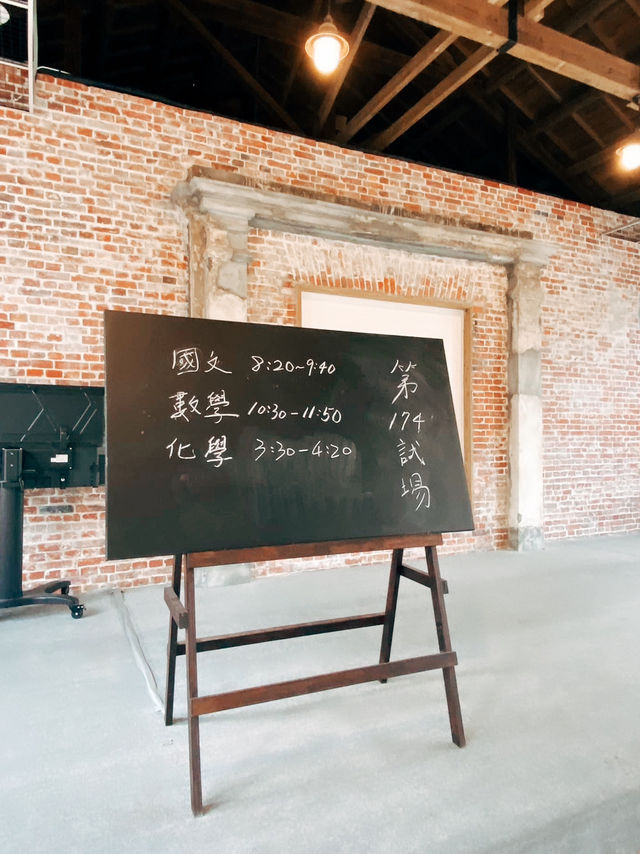 國文 8:20~9:40
數學 10:30-11:50
化學 3:30-4:20
第174試場